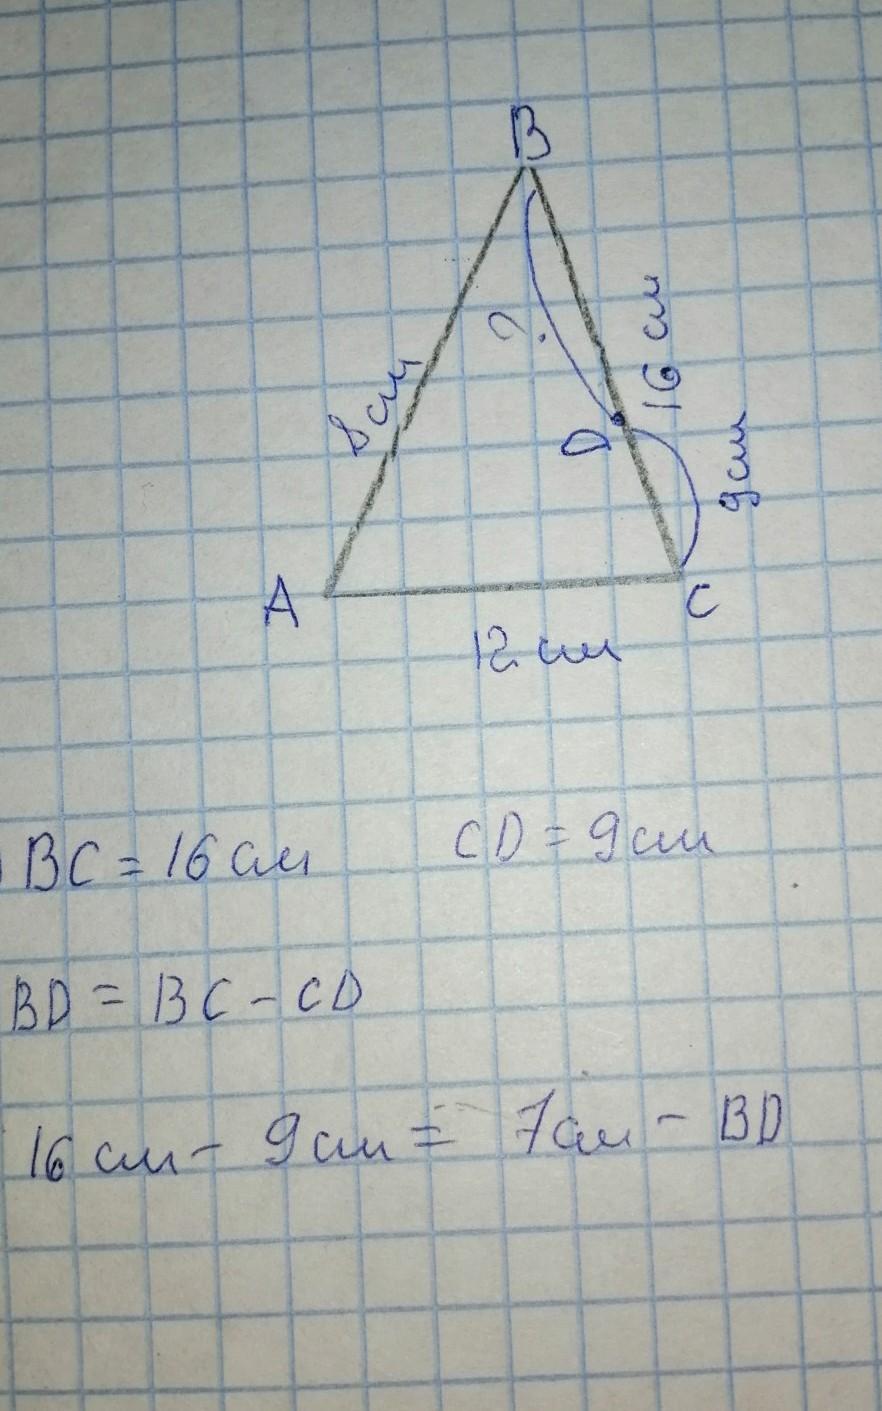 B
8 см
?
16 см
D
9 см
A
C
12 см
BC = 16 см CD = 9 см
BD = BC - CD
16 см - 9 см = 7 см - BD